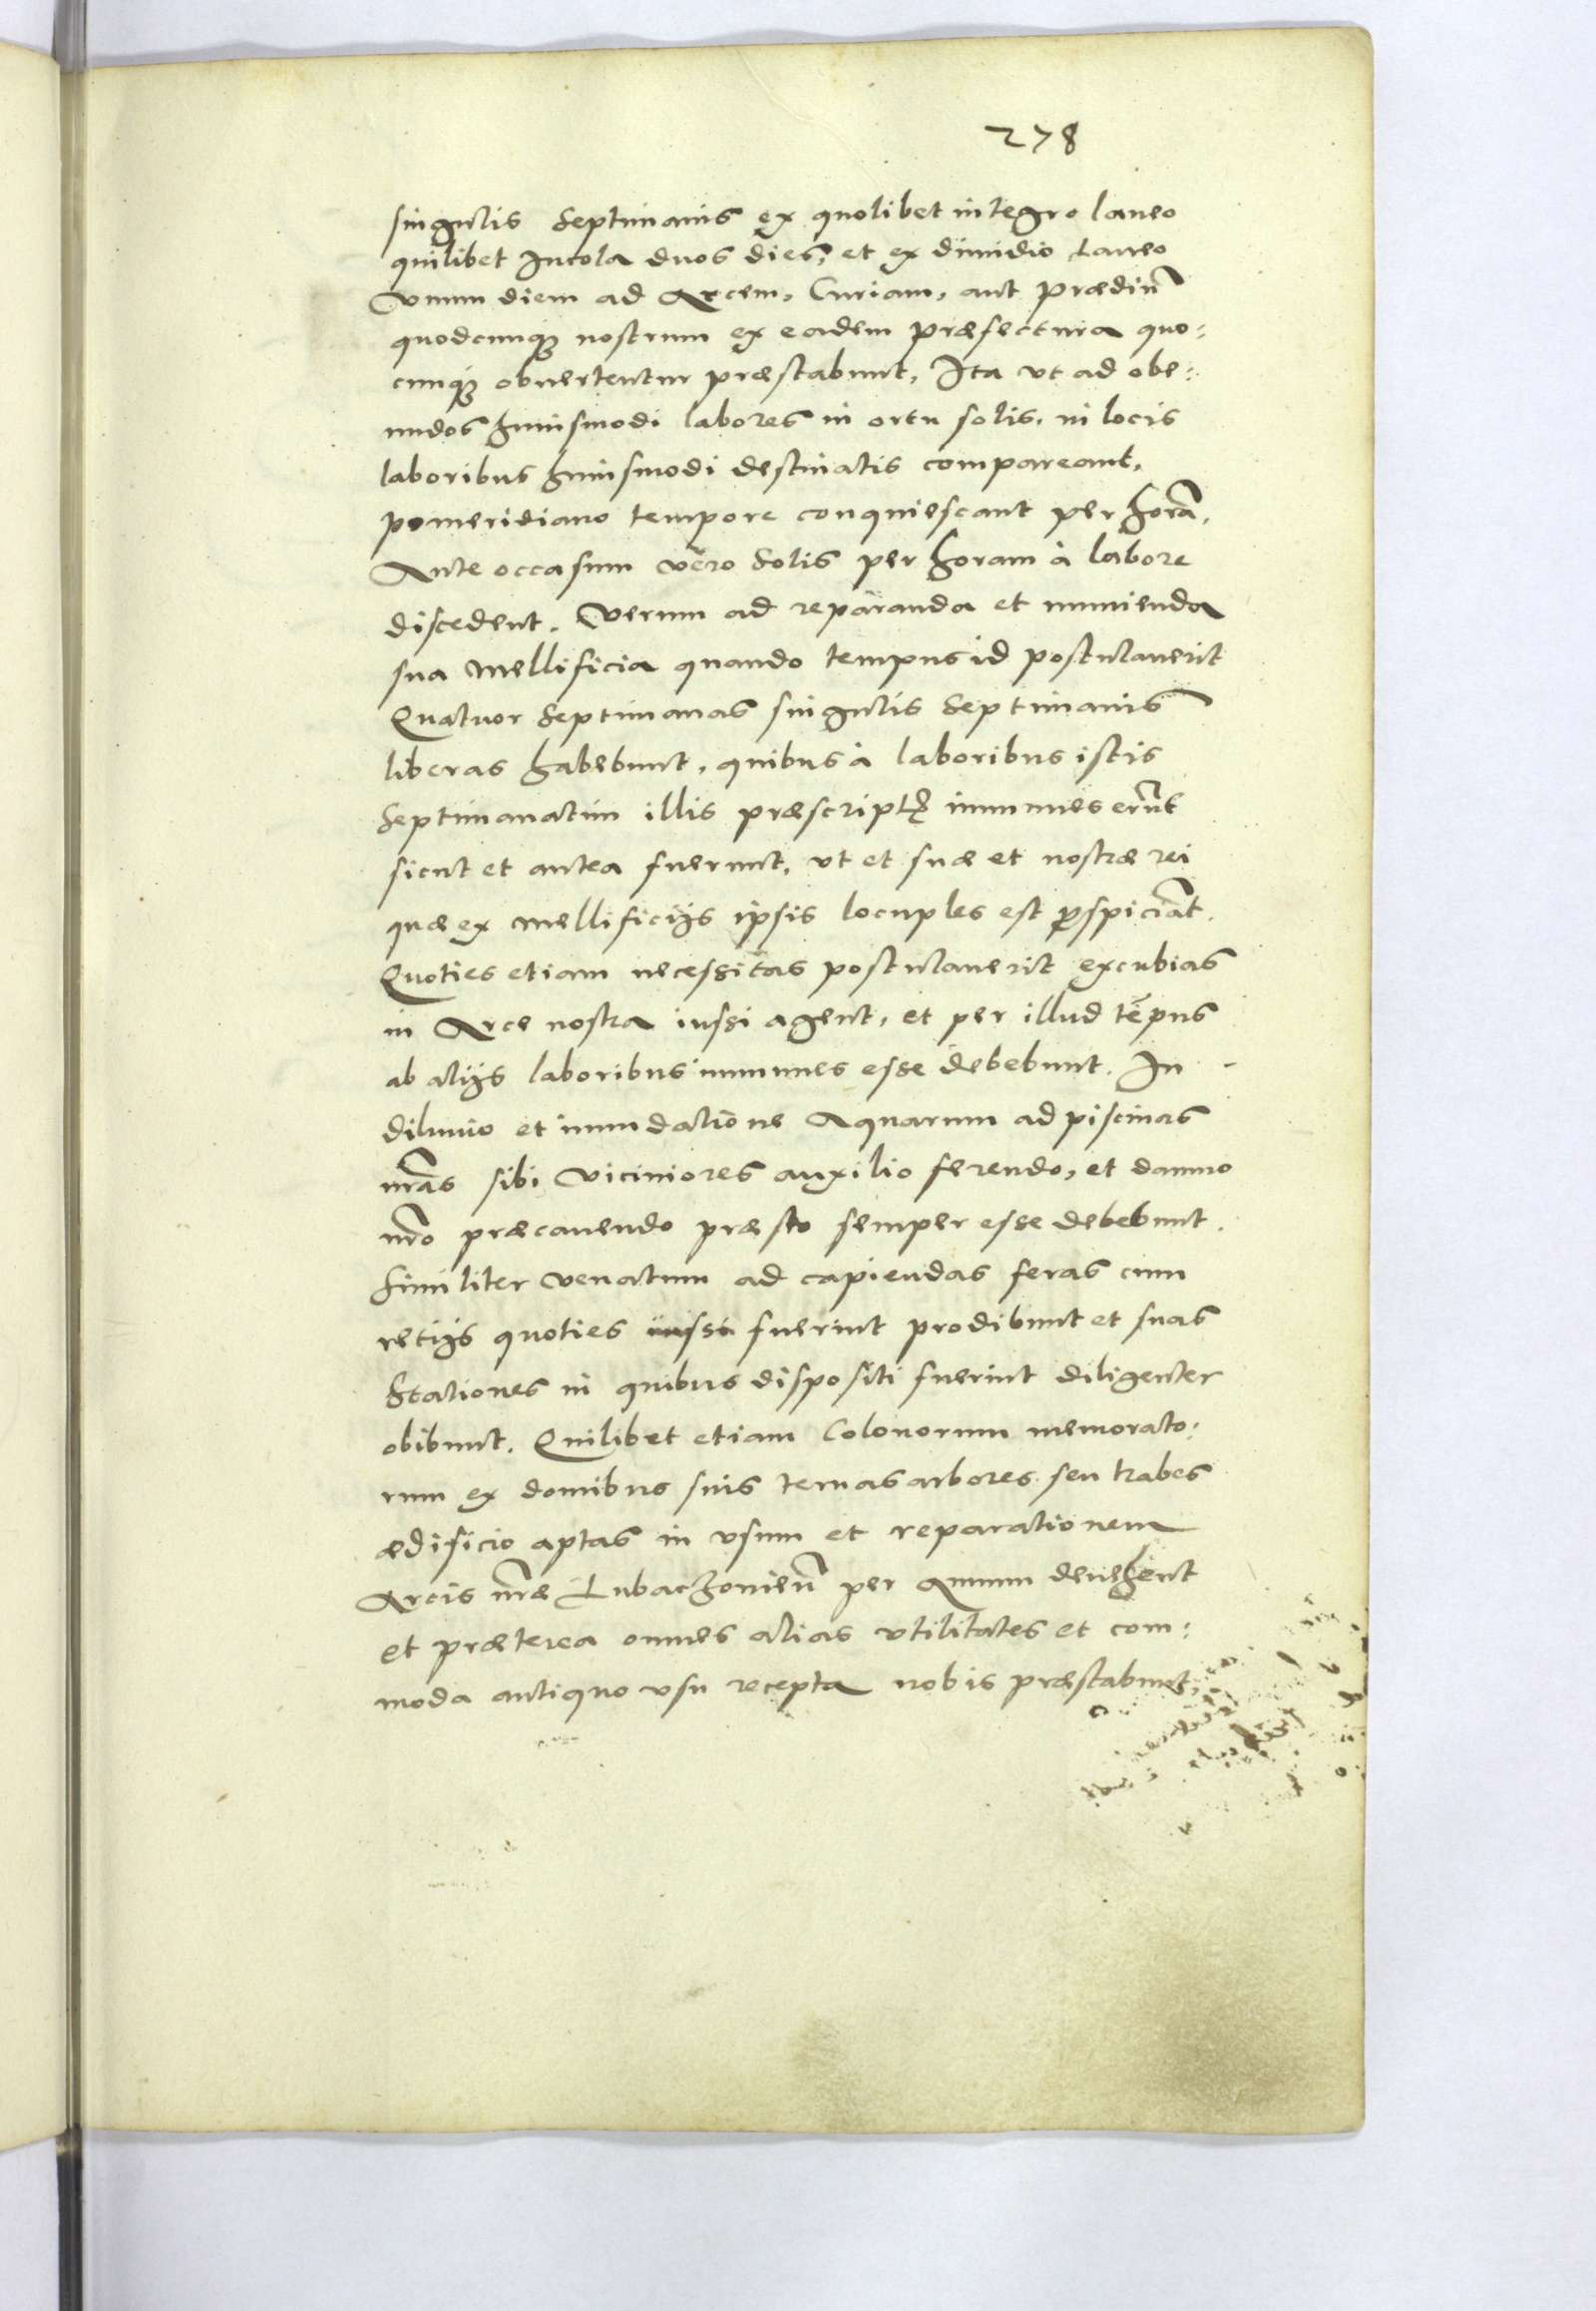 278
singulis Septimanis ex quolibet integro laneo
quilibet Incola duos dies, et ex dimidio Laneo
Vnum diem ad Arcem, Curiam, aut prædiũ
quodcunqꝫ nostrum ex eadem præfectura quo:
cunqꝫ obuertentur præstabunt, Ita vt ad obe:
undos huiusmodi labores in ortu solis, in locis
laboribus huiusmodi destinatis compareant,
pomeridiano tempore conquiescant per horã,
Ante occasum vero Solis per horam à labore
discedent. Verum ad reparanda et munienda
sua Mellificia quando tempus id postulauerit
Quatuor Septimanas singulis Septimanis
liberas habebunt, quibus à laboribus istis
Septimanatim illis præscriptꝭ immunes erũt
sicut et antea fuerunt, vt et suæ et nostræ rei
quæ ex mellificijs ipsis locuples est ꝓspiciãt.
Quoties etiam necessitas postulauerit excubias
in Arce nostra iussi agent, et per illud tẽpus
ab alijs laboribus immunes esse debebunt. In
diluuio et inundatione Aquarum ad piscinas
nr̃as sibi Viciniores auxilio ferendo, et damno
nr̃o præcauendo præsto semper esse debebunt.
Similiter venatum ad capiendas feras cum
retijs quoties iussi fuerint prodibunt et suas
Stationes in quibus dispositi fuerint diligenter
obibunt. Quilibet etiam Colonorum memorato:
rum ex domibus suis ternas arbores seu trabes
ædificio aptas in vsum et reparationem
Arcis nr̃æ Lubaczouieñ per Annum deuehent
et præterea omnes alias vtilitates et com:
moda antiquo vsu recepta nobis præstabunt,